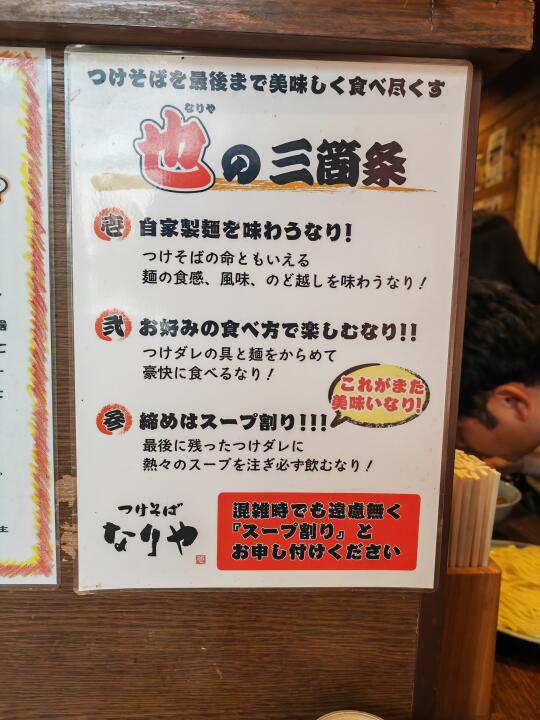 つけそばを最後まで美味しく食べ尽くす
なりや
也の三箇条
壱 自家製麺を味わうなり!
つけそばの命ともいえる
麺の食感、風味、のど越しを味わうなり!
弐 お好みの食べ方で楽しむなり!!
つけダレの具と麺をからめて
豪快に食べるなり!
これがまた
美味いなり!
参 締めはスープ割り!!!
最後に残ったつけダレに
熱々のスープを注ぎ必ず飲むなり!
つけそば
なりや
混雑時でも遠慮無く
『スープ割り』と
お申し付けください
主